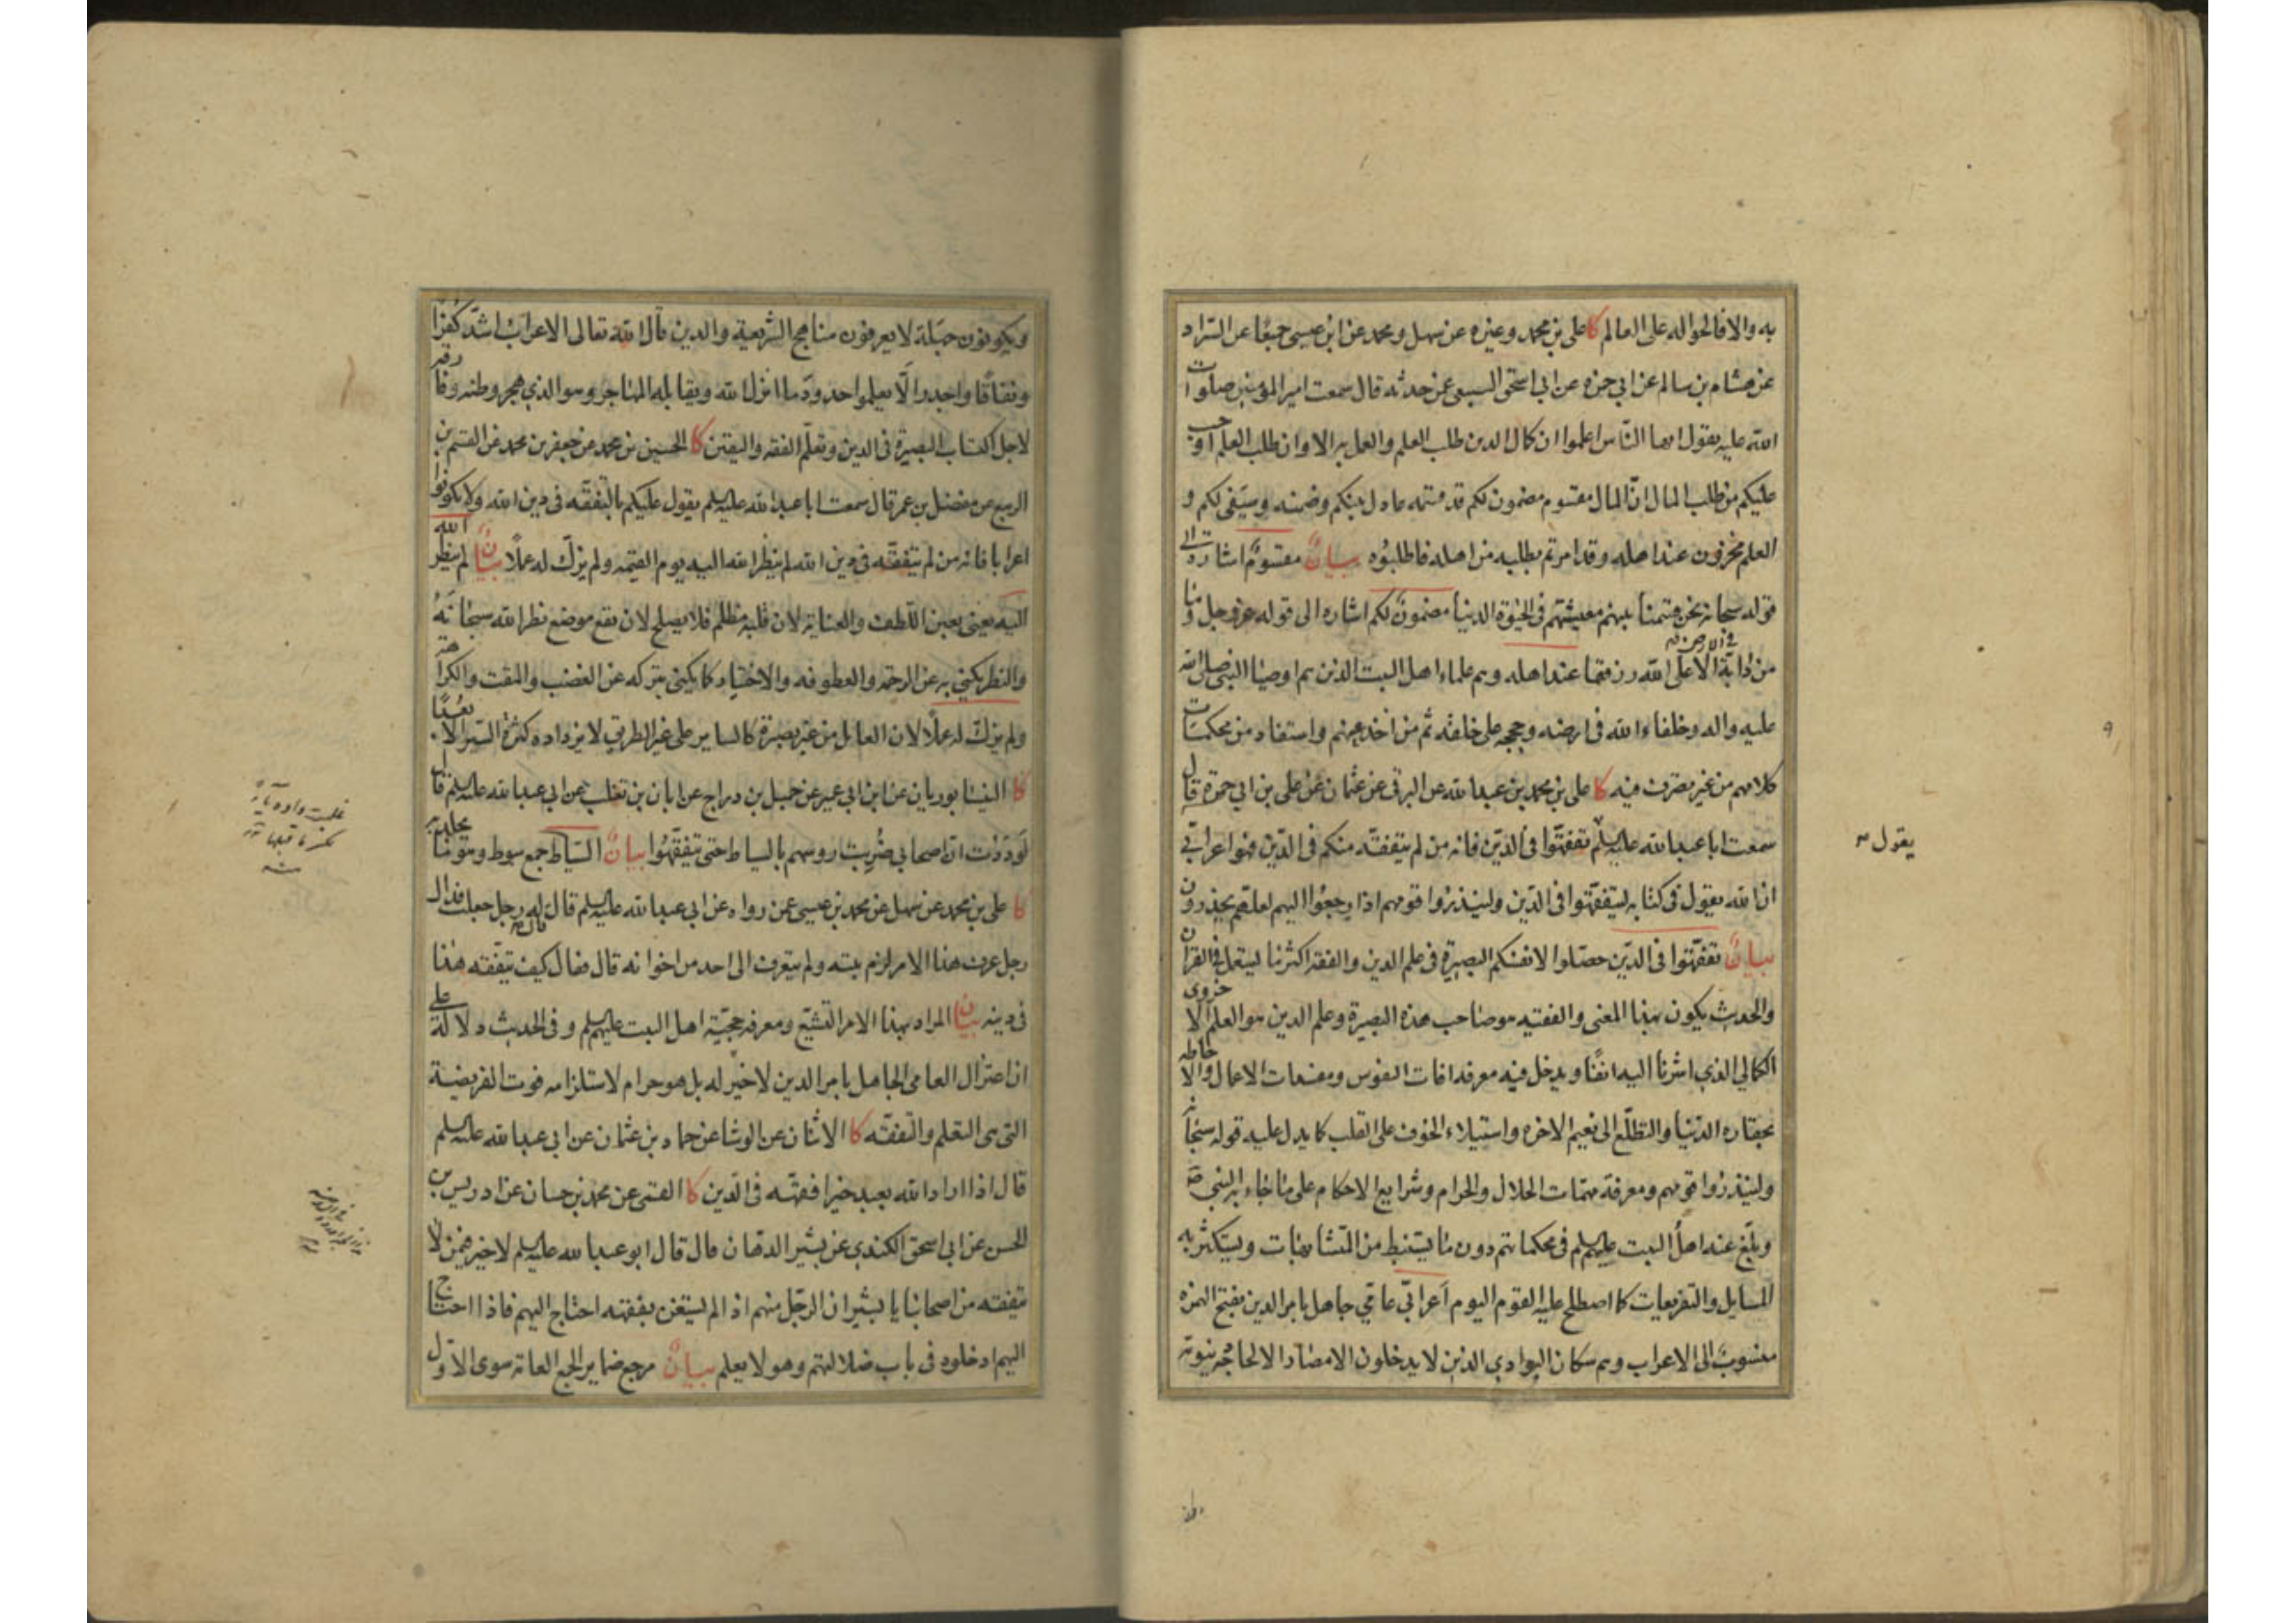 به والا فالحواله على العالم كا على بن محمد وغيره عن سهل ومحمد عن ابن عيسى جميعا عن السّراد
عن هشام بن سالم عن ابي حمزه عن ابي اسحق السبيعى عمن حدثه قال سمعت امير المؤمنين صلوات
الله عليه يقول ايها النّاس اعلموا ان كمال الدين طلب العلم والعمل به الا وان طلب العلم اوجب
عليكم من طلب المال انّ المال مقسوم مضمون لكم قد قسمه عادل بينكم وضمنه وسيَفى لكم و
العلم مخزون عند اهله وقد امرتم بطلبه من اهله فاطلبُوه بيانٌ مقسومٌ اشارة الى
قوله سبحانه نحن قسمنا بينهم معيشتهم فى الحيٰوة الدنيا مضمونٌ لكم اشاره الى قوله عز وجل وما
من دابة فى الارض الّا على الله رزقها عند اهله وهم علماء اهل البيت الذين هم اوصيا النبي صلى الله
عليه واله وخلفاء الله فى ارضه وحججه على خلقه ثم من اخذ عنهم واستفاد من محكمات
كلامهم من غير تصرف فيه كا على بن محمد بن عبد الله عن البرقى عن عثمان عن على بن ابي حمزة قال
سمعت ابا عبد الله عليه السلم يقول تفقهّوا فى الدّين فانه من لم يتفقّه منكم فى الدّين فهوا عرابّي
ان الله يقول فى كتابه ليتفقّهوا فى الدّين ولينذرُوا قومهم اذا رجعُوا اليهم لعلهّم يحذرون
بيانٌ تفقّهوا فى الدّين حصّلوا لانفسكم البصيرة فى علم الدين والفقه اكثر ما يستعمل فى القران
والحديث يكون بهذا المعنى والفقيه هو صاحب هذه البصيرة وعلم الدين هو العلم الاخروى
الكمالي الذي اشرنا اليه انفًا ويدخل فيه معرفه افات النفوس ومفسدات الاعمال والاحاطه
بحقاره الدّنيا والتطلّع الى نعيم الاخره واستيلاء الخوف على القلب كما يدل عليه قوله سبحانه
ولينذرُوا قومهم ومعرفة مهمّات الحلال والحرام وشرايع الاحكام على ما جاء به النبي ص
وبلّغ عنه اهلُ البيت عليهم السلم فى محكماتهم دون ما يستنبط من المتشابهات ويستكثر به
المسايل والتفريعات كما اصطلح عليه القوم اليوم اَعرابّي عامّي جاهل بامر الدين بفتح الهمزه
منسوب الى الاعراب وهم سكان البوادي الذين لا يدخلون الامصار الا لحاجة دنيوية
ويكونون جهلة لا يعرفون مناهج الشريعية والدين قال الله تعالى الاعراب اشدّ كفرًا
ونفاقًا واجدر الّا يعلموا حدودَ ما انزل الله ويقابله المهاجر وهو الذي هجر وطنه وفارقه
لاجل اكتساب البصيرة فى الدين وتعلّم الفقه واليقين كا الحسين بن محمد عن جعفر بن محمد عن القسم بن
الربيع عن مفضل بن عمر قال سمعت ابا عبد الله عليه السلم يقول عليكم بالتفقّه فى دين الله ولا تكونوا
اعرابا فانه من لم يتفقّه فى دين الله لم ينظر الله اليه يوم القيمه ولم يزكّ له عملًا بيانٌ لم ينظر الله
اليه يعنى بعين اللّطف والعناية لان قلبه مظلم فلا يصلح لان يقع موضع نظر الله سبحانَهُ
والنظر يكنى به عن الرحمه والعطوفه والاختيار كما يكنى بتركه عن الغضب والمقت والكراهة
ولم يزكّ له عملًا لان العامل من غير بصيرة كالساير على غير الطريق لا يزداده كثرة السّير الا بعُدًا
كا النيسابوريان عن ابن ابي عمير عن جميل بن دراج عن ابان بن تغلب عن ابي عبد الله عليه السلم قال
لَوَدَدْت انّ اصحابي ضُرِبت روسهم بالسياط حتى يتفقّهُوا بيانٌ السّياط جمع سوط وهو ما يجلد به
كا على بن محمد عن سهل عن محمد بن عيسى عمن رواه عن ابي عبد الله عليه السلم قال قال له رجل جعلت فداك
رجل عرف هذا الامر لزم بيته ولم يتعرف الى احد من اخوانه قال فقال كيف يتفّقه هٰذا
فى دينه بيانٌ المراد بهذا الامر التشيّع ومعرفة حجيّة اهل البيت عليهم السلم وفى الحديث دلالة على
ان اعتزال العامى الجاهل بامر الدين لا خير له بل هو حرام لاستلزامه فوت الفريضة
التى هى التعلم والتفقّه كا الاثنان عن الوشا عن حماد بن عثمان عن ابي عبد الله عليه السلم
قال اذا اراد الله بعبد خيرا فقهّه فى الدّين كا القمى عن محمد بن حسان عن ادريس بن
الحسن عن ابي اسحق الكندي عن بشير الدهان قال قال ابو عبد الله عليه السلم لا خير فيمن لا
يتفقه من اصحابنا يا بشير ان الرجّل منهم اذا لم يستغن بفقهه احتاج اليهم فاذا احتاج
اليهم ادخلوه فى باب ضلالتهم وهو لا يعلم بيانٌ مرجع ضماير الجمع العامة سوى الاول